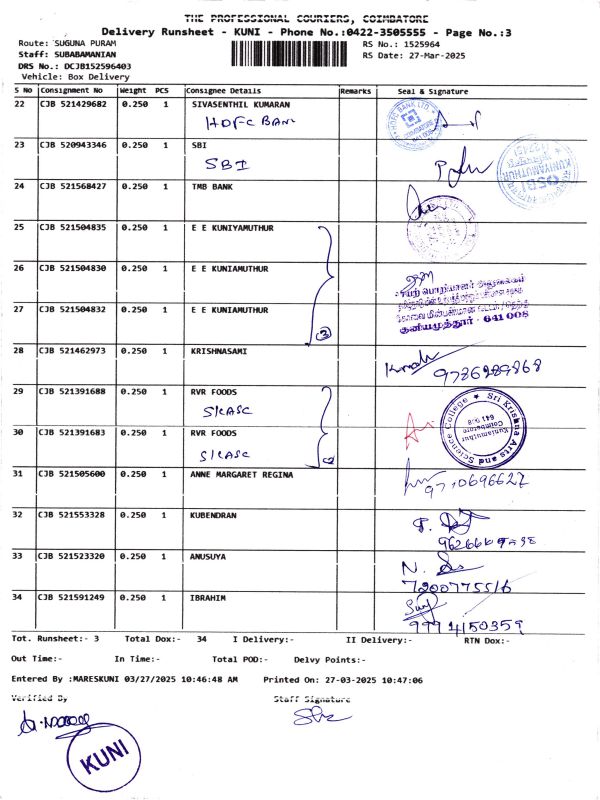 THE PROFESSIONAL COURIERS, COIMBATORE
Delivery Runsheet - KUNI - Phone No.:0422-3505555 - Page No.:3
Route: SUGUNA PURAM
RS No.: 1525964
Staff: SUBABAMANIAN
RS Date: 27-Mar-2025
DRS No.: DCJB152596403
Vehicle: Box Delivery
S No Consignment No Weight PCS Consignee Details Remarks Seal & Signature
22 CJB 521429682 0.250 1 SIVASENTHIL KUMARAN
HDFC BANK
23 CJB 520943346 0.250 1 SBI
SBI
24 CJB 521568427 0.250 1 TMB BANK
25 CJB 521504835 0.250 1 E E KUNIYAMUTHUR
26 CJB 521504830 0.250 1 E E KUNIAMUTHUR
27 CJB 521504832 0.250 1 E E KUNIAMUTHUR
(3)
குனியமுத்தூர் - 641 008
28 CJB 521462973 0.250 1 KRISHNASAMI
9786989868
29 CJB 521391688 0.250 1 RVR FOODS
SKASC
30 CJB 521391683 0.250 1 RVR FOODS
SKASC
Sri Krishna Arts and Science College
Kuniamuthur
Coimbatore
31 CJB 521505600 0.250 1 ANNE MARGARET REGINA
9710696627
32 CJB 521553328 0.250 1 KUBENDRAN
33 CJB 521523320 0.250 1 ANUSUYA
7200775516
34 CJB 521591249 0.250 1 IBRAHIM
9994150359
Tot. Runsheet:- 3 Total Dox:- 34 I Delivery:- II Delivery:- RTN Dox:-
Out Time:- In Time:- Total POD:- Delvy Points:-
Entered By :MARESKUNI 03/27/2025 10:46:48 AM Printed On: 27-03-2025 10:47:06
Verified By Staff Signature
KUNI